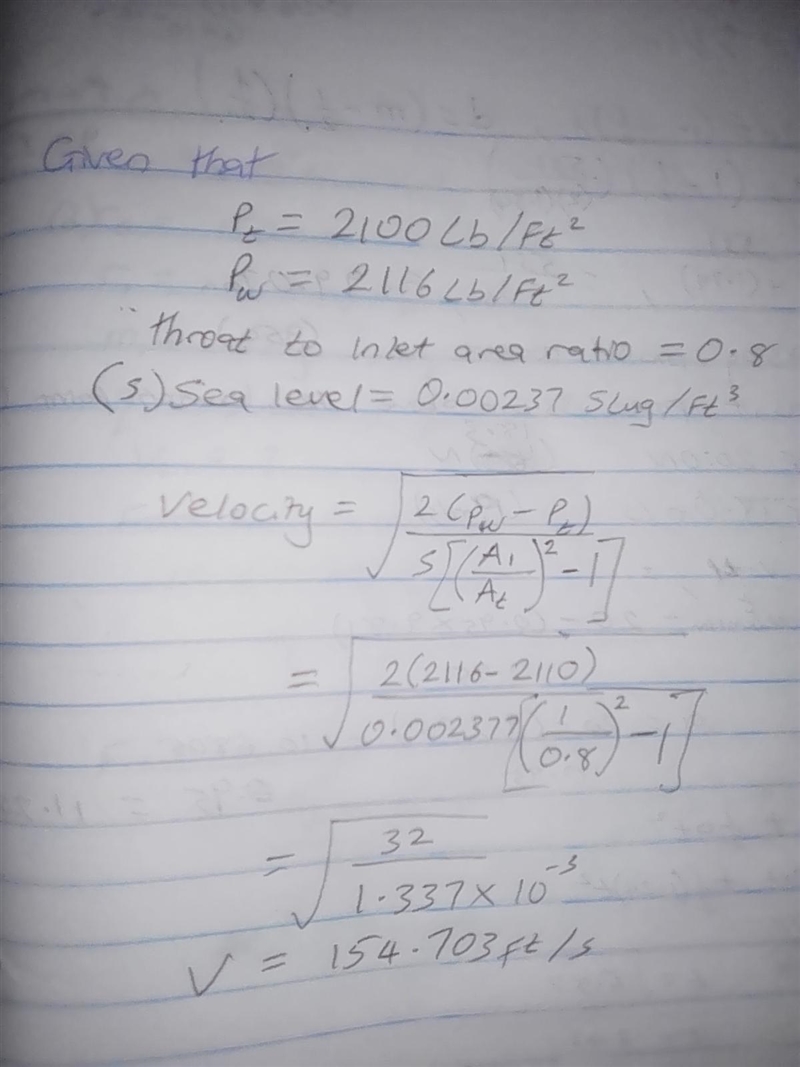 Given that
P_t = 2100 Lb/Ft²
P_w = 2116 Lb/Ft²
throat to Inlet area ratio = 0.8
(s) Sea level = 0.00237 Slug/Ft³
Velocity = √(2(P_w - P_t) / s[(A_1/A_t)² - 1])
= √(2(2116 - 2110) / 0.002377[(1/0.8)² - 1])
= √(32 / 1.337 × 10⁻³)
V = 154.703 ft/s